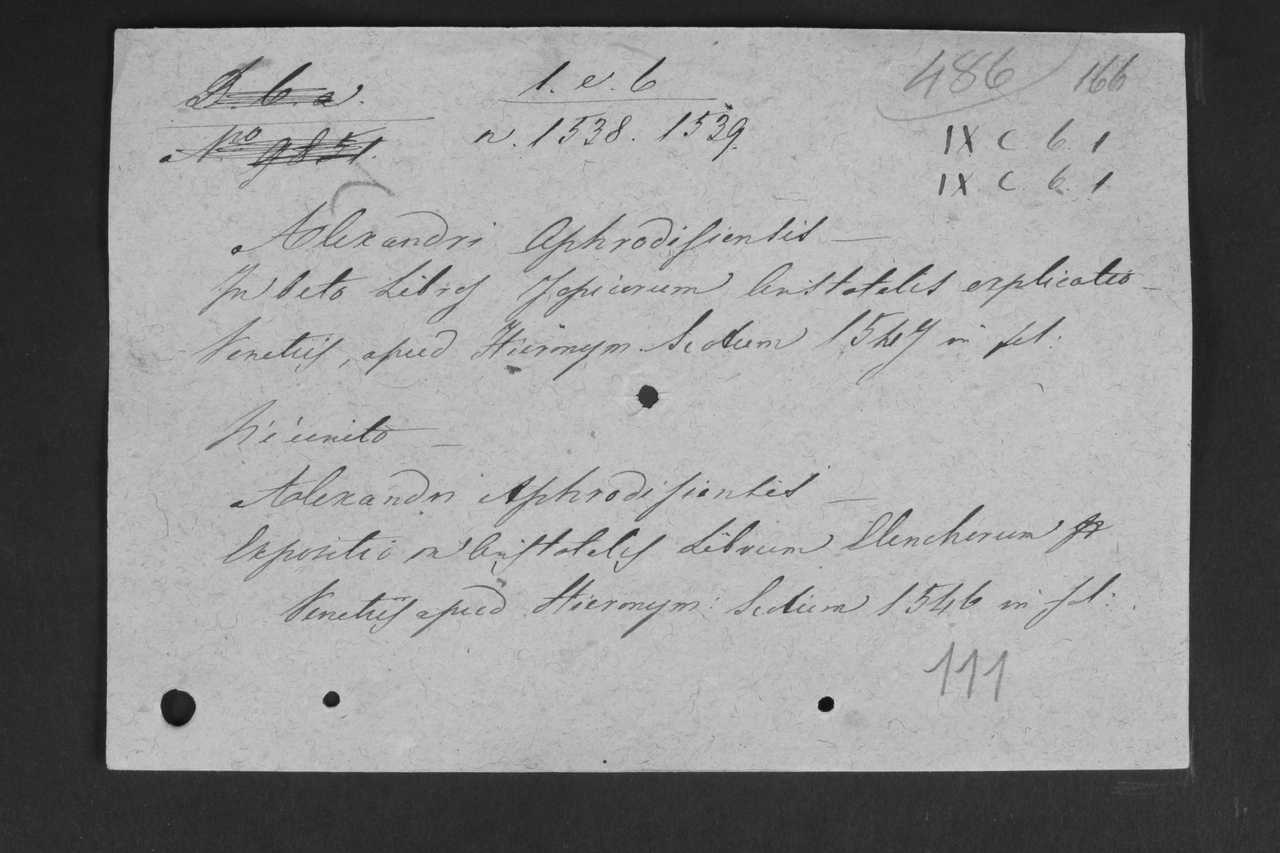 B. 6. a.
1. e. 6
486
166
Nro 9851.
n. 1538. 1539.
IX C 6. 1
IX C 6. 1
Alexandri Aphrodisientis —
In octo Libros Topicorum Aristotelis explicatio —
Venetiis, apud Hieronym Scotum 1547 in fol:
Vi è unito —
Alexandri Aphrodisientis —
Expositio in Aristotelis Librum Elenchorum
Venetiis apud Hieronym: Scotum 1546 in fol:
111